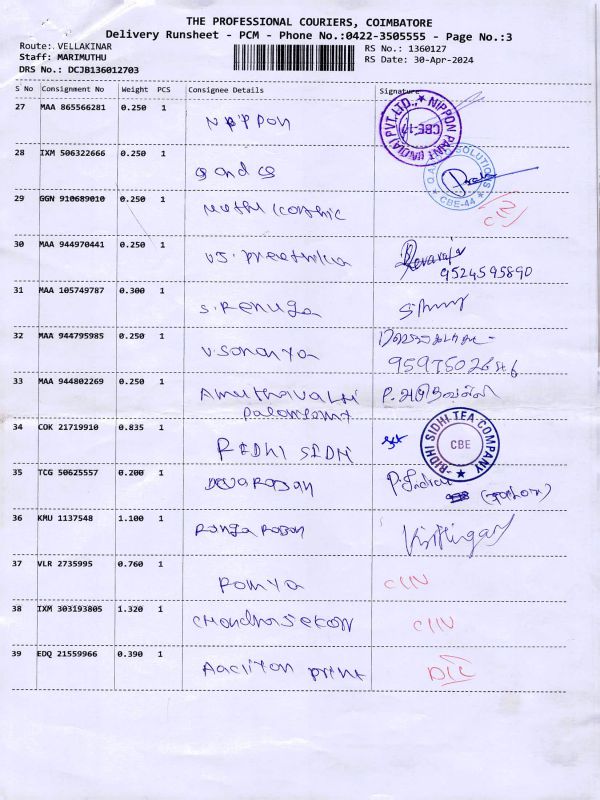 THE PROFESSIONAL COURIERS, COIMBATORE
Delivery Runsheet - PCM - Phone No.:0422-3505555 - Page No.:3
Route: VELLAKINAR RS No.: 1360127
Staff: MARIMUTHU RS Date: 30-Apr-2024
DRS No.: DCJB136012703
S No Consignment No Weight PCS Consignee Details Signature
27 MAA 865566281 0.250 1 NIPPON NIPPON PAINT (INDIA) PVT.LTD., CBE-17
28 IXM 506322666 0.250 1 Q and Q SOLUTIONS CBE-44
29 GGN 910689010 0.250 1 CIN
30 MAA 944970441 0.250 1 VS. Preethika Devaraja
9524595890
31 MAA 105749787 0.300 1 S. Renuga
32 MAA 944795985 0.250 1 V Sonarya
33 MAA 944802269 0.250 1 Amuthavalli
34 COK 21719910 0.835 1 RIDHI SIDHI RIDHI SIDHI TEA COMPANY CBE
35 TCG 50625557 0.200 1 Devarajan P. Indira
36 KMU 1137548 1.100 1 Rangarajan
37 VLR 2735995 0.760 1 Romya CIIN
38 IXM 303193805 1.320 1 Chandrasekar CIIN
39 EDQ 21559966 0.390 1 print DLC